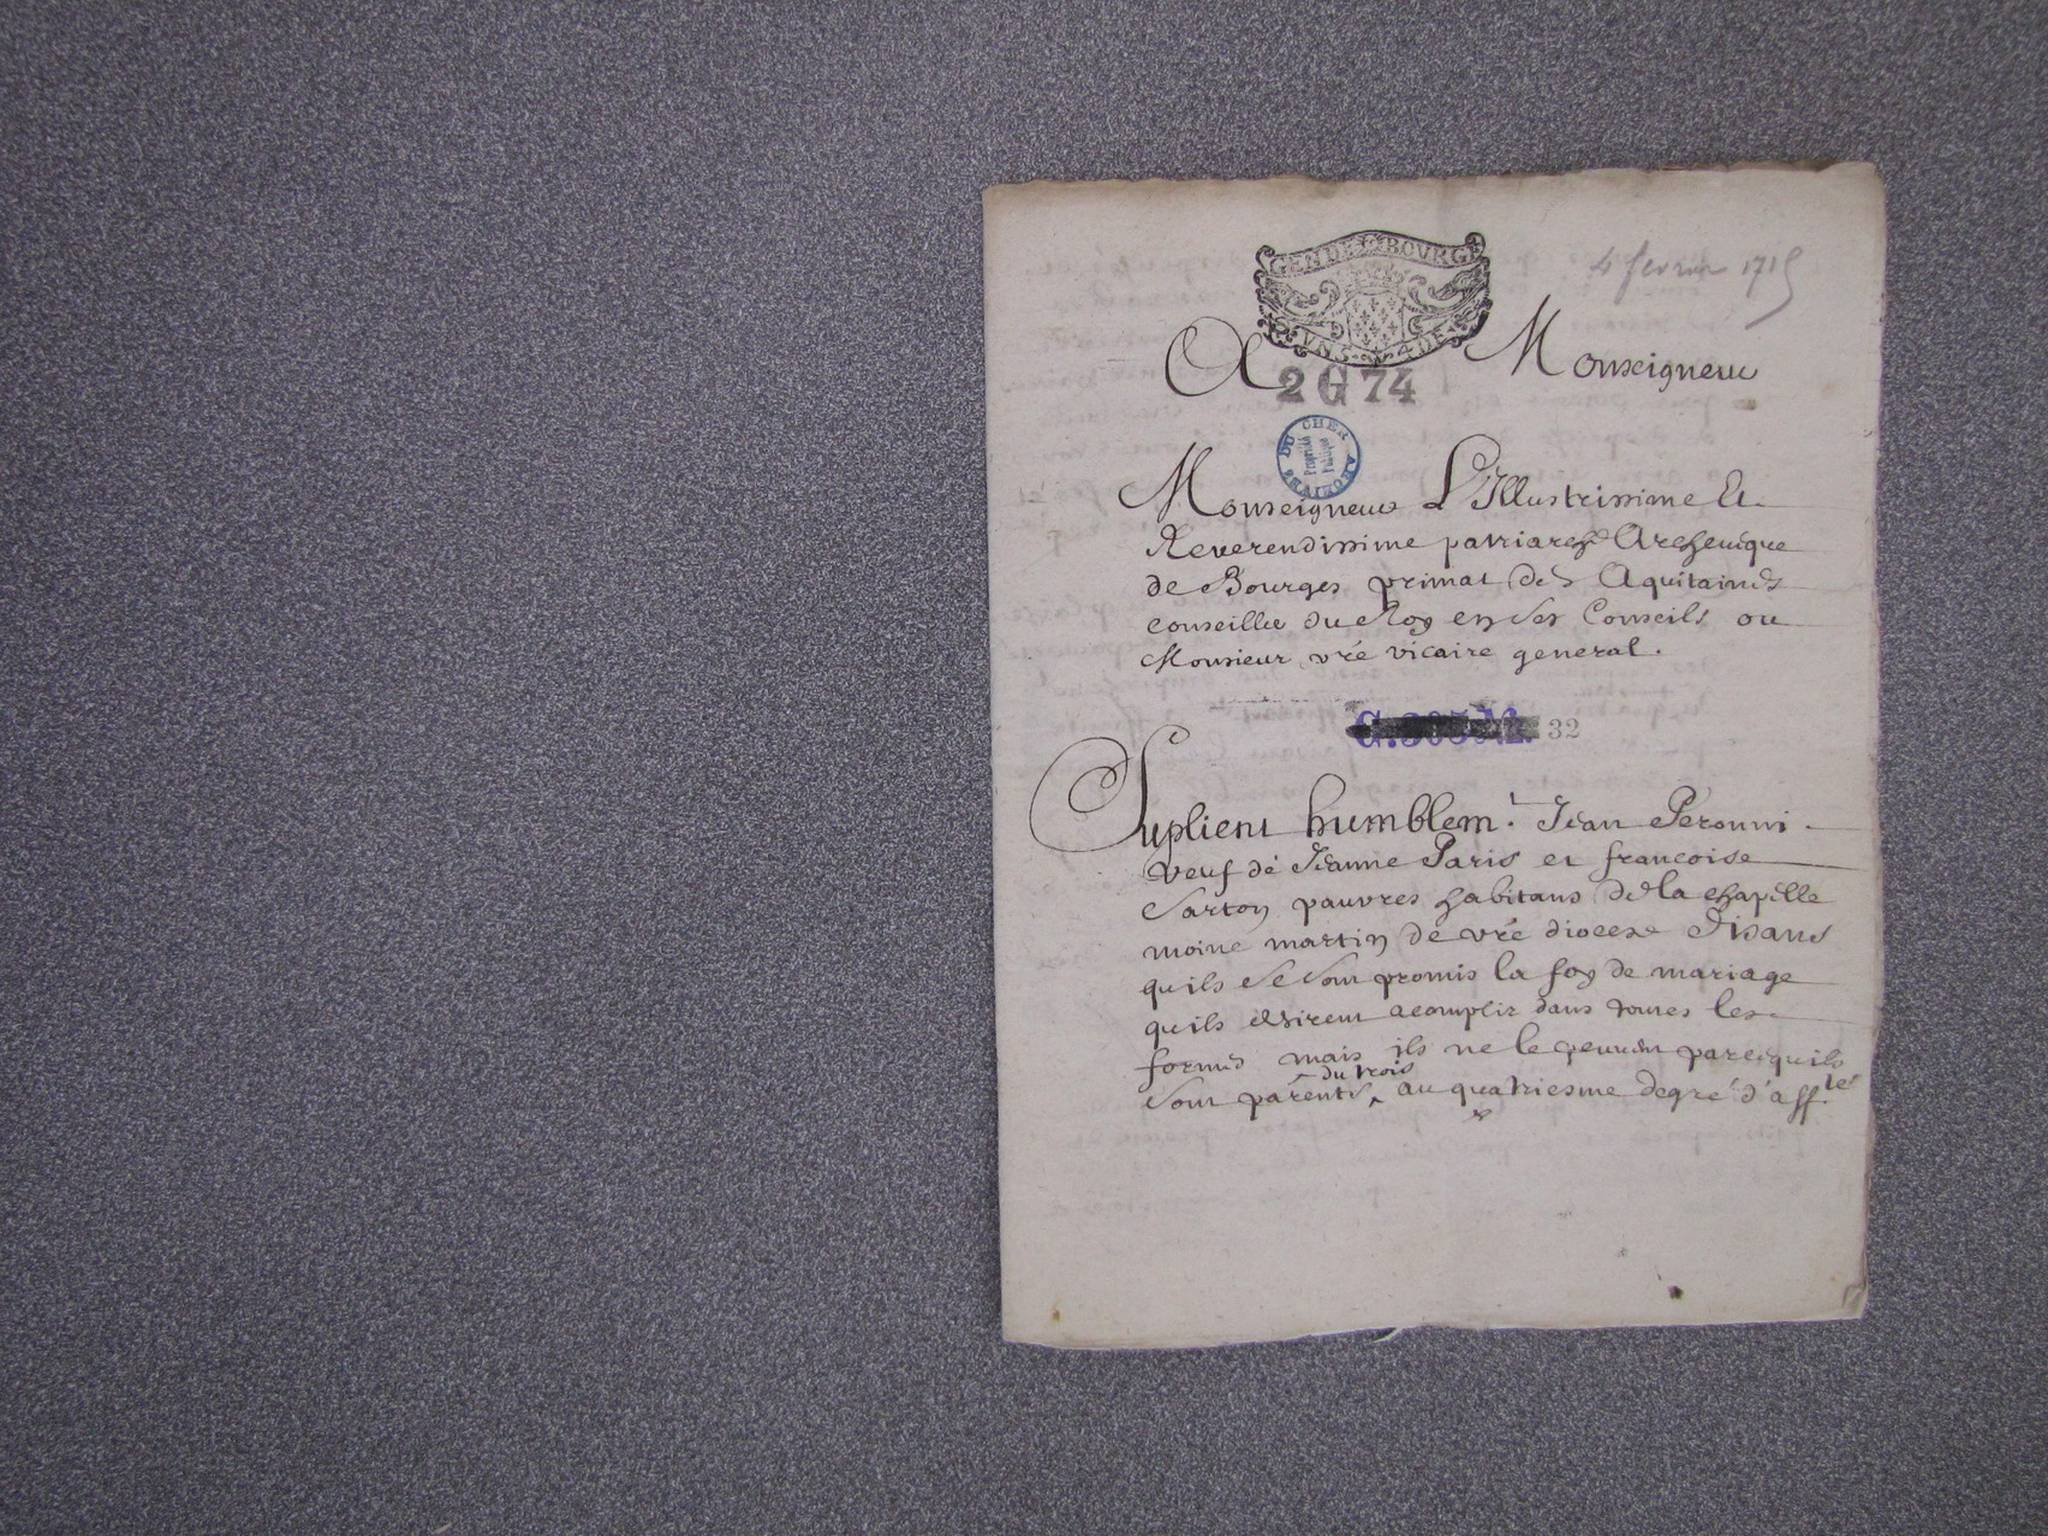 GEN DE BOVRGE
4 fevrier 1715
VNS 4 DE
A Monseigneur
2 G 74
ARCHIVES DU CHER
Propriété
Publique
Monseigneur L'Illustrissime Et
Reverendissime patriarche Archevêque
de Bourges primat des Aquitaines
conseiller du Roy en ses Conseils ou
Monsieur vre vicaire general.
32
Suplient humblemt Jean Peronni
veuf de Jeanne Paris et francoise
Sarton pauvres habitans de la chapelle
moine martin de vre diocese disans
quils se sont promis la foy de mariage
quils desirent acomplir dans toutes les
formes mais ils ne le peuvent parcequils
du trois
sont parents au quatriesme degré d'affté